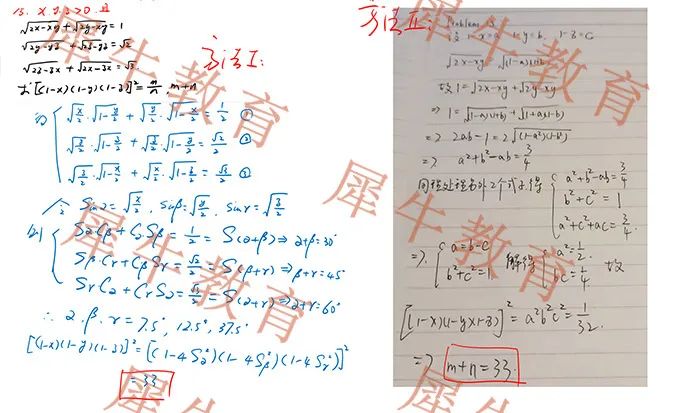 15. x.y.z>0.且
√2x-xy + √2y-xy = 1
√2y-yz + √2z-yz = √2
√2z-zx + √2x-zx = √3.
求[(1-x)(1-y)(1-z)]² = m/n, m+n
方法I:
√x/2 · √1-y/2 + √y/2 · √1-x/2 = 1/2 ①
√y/2 · √1-z/2 + √z/2 · √1-y/2 = √2/2 ②
√z/2 · √1-x/2 + √x/2 · √1-z/2 = √3/2 ③
令 Sin2 = √x/2, Sinβ = √y/2, Sinr = √z/2
则 S2Cβ + C2Sβ = 1/2 = S(2+β) ⇒ 2+β=30°
SβCr + CβSr = √2/2 = S(β+r) ⇒ β+r=45°
SrC2 + CrS2 = √3/2 = S(2+r) ⇒ 2+r=60°
∴ 2.β.r = 7.5°, 12.5°, 37.5°
[(1-x)(1-y)(1-z)]² = [(1-4S2²)(1-4Sβ²)(1-4Sr²)]²
= 33
方法II:
Problems
1-x=a 1-y=b, 1-z=C
√2x-xy √(1-a)(1+b)
故 1 = √2x-xy + √2y-xy
⇒ 1 = √(1-a)(1+b) + √(1+a)(1-b)
⇒ 2ab-1 = 2√(1-a²)(1-b²)
⇒ a²+b²-ab = 3/4
同理处理另外2个式子.得
a²+b²-ab = 3/4
b²+c² = 1
a²+c²+ac = 3/4.
⇒ a=b-c
b²+c²=1
解得
a²=1/2.
bc=1/4.
故
[(1-x)(1-y)(1-z)]² = a²b²c² = 1/32.
⇒ m+n=33.
犀牛教育
犀牛教育
犀牛教育
犀牛教育